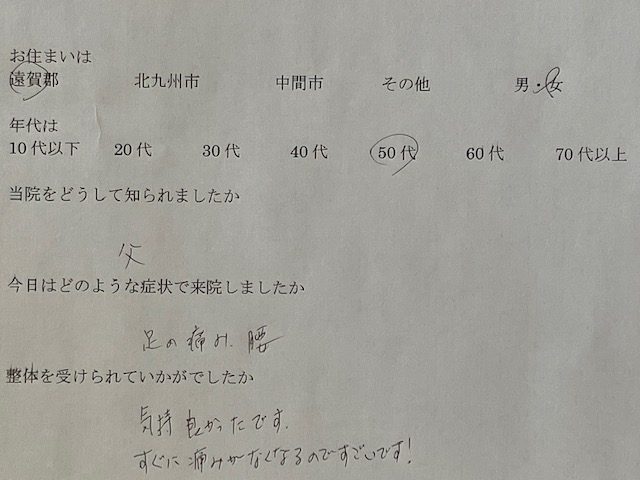 お住まいは
遠賀郡 北九州市 中間市 その他 男・女
年代は
10代以下 20代 30代 40代 50代 60代 70代以上
当院をどうして知られましたか
父
今日はどのような症状で来院しましたか
足の痛み、腰
整体を受けられていかがでしたか
気持良かったです。
すぐに痛みがなくなるのですごいです!